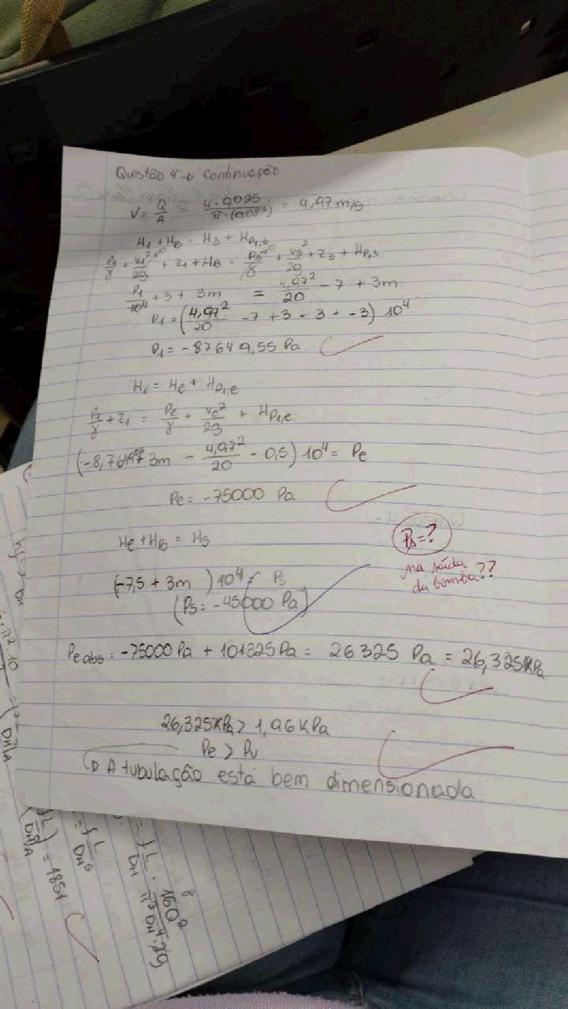 Questão 4 → Continuação
V = Q/A = 4·0,025/π·(0,08²) = 4,97 m/s
H1 + HB = H3 + Hp1,3
P1/γ + V1²/2g + z1 + HB = P3/γ + V3²/2g + z3 + Hp1,3
P1/10⁴ + 3 + 3m = 4,97²/20 - 7 + 3m
P1 = (4,97²/20 - 7 + 3 - 3 + -3) 10⁴
P1 = -87649,55 Pa
H1 = He + Hp1,e
P1/γ + z1 = Pe/γ + Ve²/2g + Hp1,e
+ 3m - 4,97²/20 - 0,5) 10⁴ = Pe
Pe = -75000 Pa
He + HB = Hs
Ps = ?
na saída
da bomba??
(-7,5 + 3m) 10⁴ = Ps
(Ps = -45000 Pa)
Pe abs = -75000 Pa + 101325 Pa = 26325 Pa = 26,325 KPa
26,325 KPa > 1,96 KPa
Pe > Pv
↳ A tubulação está bem dimensionada
= 4854